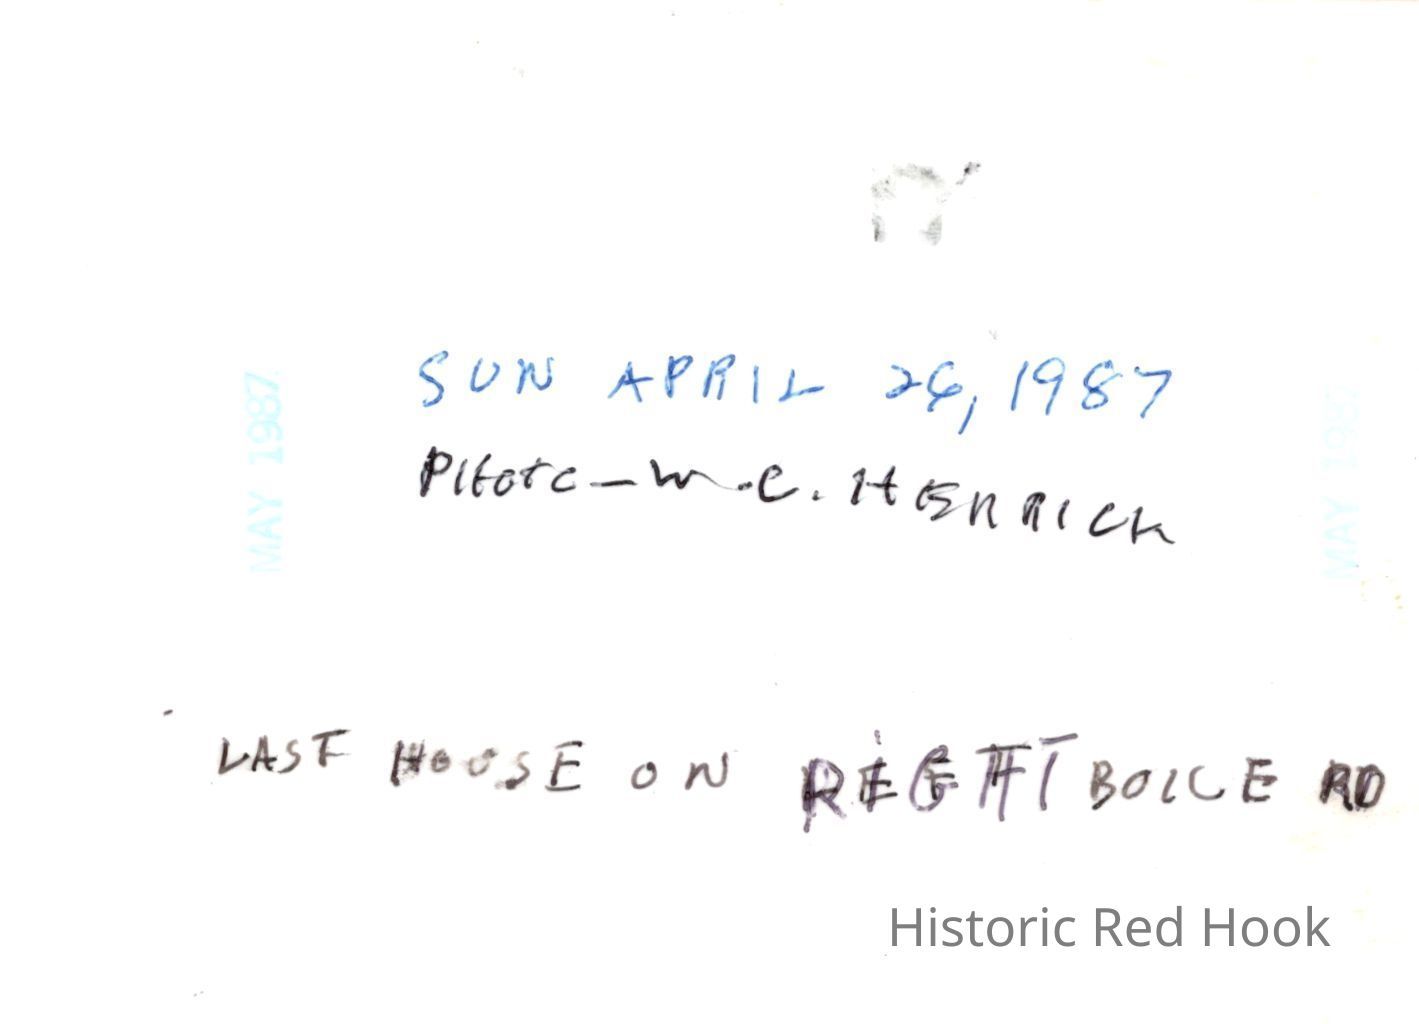 SUN APRIL 26, 1987
MAY 1987
MAY 1987
PHOTO – W.C. HERRICK
LAST HOUSE ON RIGHT BOICE RD
Historic Red Hook